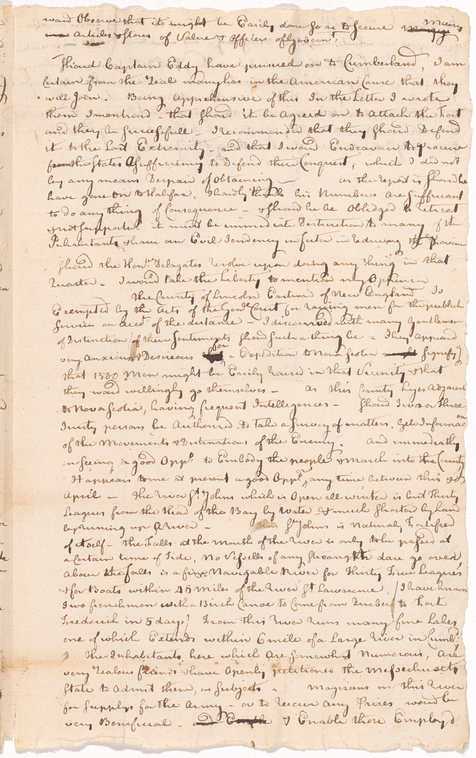 woud Observe that it might be Easily done so as to Secure many
Articles & Stores of Value & Officers of Govermt.
Shoud Captain Eddy have pursued on to Cumberland, I am
Certain from the Zeal many has in the American Cause that they
will Join. Being Apprehensive of this In the Letter I wrote
them I mentiond - that Shoud it be agreed on to Attack the Fort
and they be Successfull I recommended that they Shoud Defend
it to the Last Extremity, and that I woud Endeavour to procure
from the States A Sufficiency to Defend their Conquest, which I did not
by any means Despair of Obtaining as the report is Shoud he
have gone on to Halifax, I hardly think his Numbers are Sufficient
to do any thing of Consequence - & Shoud he be Obliged to Retreat
& not Supported it must be immediate Destruction to many of the
Inhabitants & have an Evil Tendency in future in reducing the Province
Shoud the Honble. Delegates resolve upon doing any thing in that
Quarter. I woud take the Liberty to mention my Opinion
The County of Lincoln Eastward of New England Is
Exempted by the Acts of the Genl. Court for raising men for the publick
Service on Acct. of the distance - I discoursed with many Gentlemen
of Distinction of their Sentiments Shoud Such a thing be & they appeard
very Anxious & Desireous for a Expedition to Nova Scotia & Signify'd
that 1500 Men might be Easily raised in that Vicinity & that
they woud willingly go themselves - as this County Lyes Adjacent
to Nova Scotia, having frequent Intelligences - Shoud Two or Three
Trusty persons be Authorized to take a Survey of matters, Get Information
of the Movements & Destinations of the Enemy. And immediately
on Seeing a good Oppy. to Embody the people & march into the County
It appears to me at present a good Oppy. any time between this &
April - The River St. Johns which is Open all winter is but Thirty
Leagues from the Head of the Bay by Water & much Shorter by land
by running up a River - The St. Johns is Naturaly Fortified
of itself - the Falls at the mouth of the River is only to be passed at
a Certain time of Tide, No Vessells of any Strength dare go over
above the falls is a fine Navigable River for Thirty Five Leagues
& for Boats within 45 Miles of the River St. Lawrence, (I have known
Two frenchmen with a Birch Canoe to Come from Quebec to Fort
Frederick in 5 days) From this River runs many fine Lakes
one of which Extends within 6 mile of a Large River in Cumbd.
The Inhabitants here which are Somewhat Numerous, are
very Zealous friends & have Openly petitioned the Massachusets
State to Admit them, as Subjects - Magazens on this River
for Supplys for the Army - or to Receive any Prizes woud be
very Beneficial - & Enable those Employd